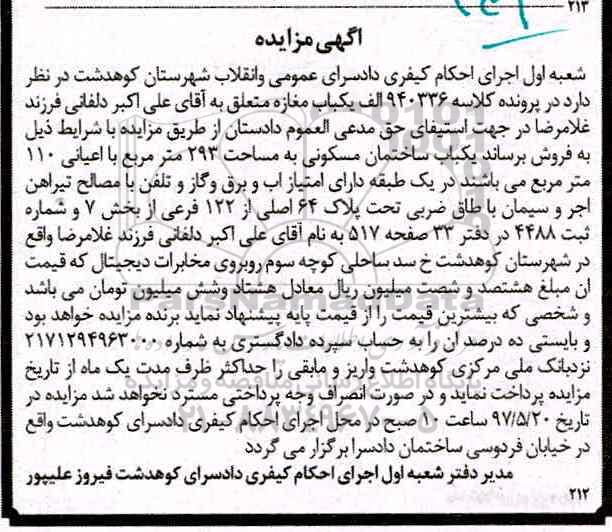 ۲۱۳
آگهی مزایده
شعبه اول اجرای احکام کیفری دادسرای عمومی وانقلاب شهرستان کوهدشت در نظر
دارد در پرونده کلاسه ۹۴۰۳۳۶ الف یکباب مغازه متعلق به آقای علی اکبر دلفانی فرزند
غلامرضا در جهت استیفای حق مدعی العموم دادستان از طریق مزایده با شرایط ذیل
به فروش برساند یکباب ساختمان مسکونی به مساحت ۲۹۳ متر مربع با اعیانی ۱۱۰
متر مربع می باشد در یک طبقه دارای امتیاز اب و برق وگاز و تلفن با مصالح تیراهن
اجر و سیمان با طاق ضربی تحت پلاک ۶۴ اصلی از ۱۲۲ فرعی از بخش ۷ و شماره
ثبت ۴۴۸۸ در دفتر ۳۳ صفحه ۵۱۷ به نام آقای علی اکبر دلفانی فرزند غلامرضا واقع
در شهرستان کوهدشت خ سد ساحلی کوچه سوم روبروی مخابرات دیجیتال که قیمت
ان مبلغ هشتصد و شصت میلیون ریال معادل هشتاد وشش میلیون تومان می باشد
و شخصی که بیشترین قیمت را از قیمت پایه پیشنهاد نماید برنده مزایده خواهد بود
و بایستی ده درصد ان را به حساب سپرده دادگستری به شماره ۲۱۷۱۲۹۴۹۶۳۰۰۰
نزدبانک ملی مرکزی کوهدشت واریز و مابقی را حداکثر ظرف مدت یک ماه از تاریخ
مزایده پرداخت نماید و در صورت انصراف وجه پرداختی مسترد نخواهد شد مزایده در
تاریخ ۹۷/۵/۲۰ ساعت ۱۰ صبح در محل اجرای احکام کیفری دادسرای کوهدشت واقع
در خیابان فردوسی ساختمان دادسرا برگزار می گردد
مدیر دفتر شعبه اول اجرای احکام کیفری دادسرای کوهدشت فیروز علیپور
۲۱۲
ParsNamadData
پایگاه اطلاع رسانی مناقصه و مزایده